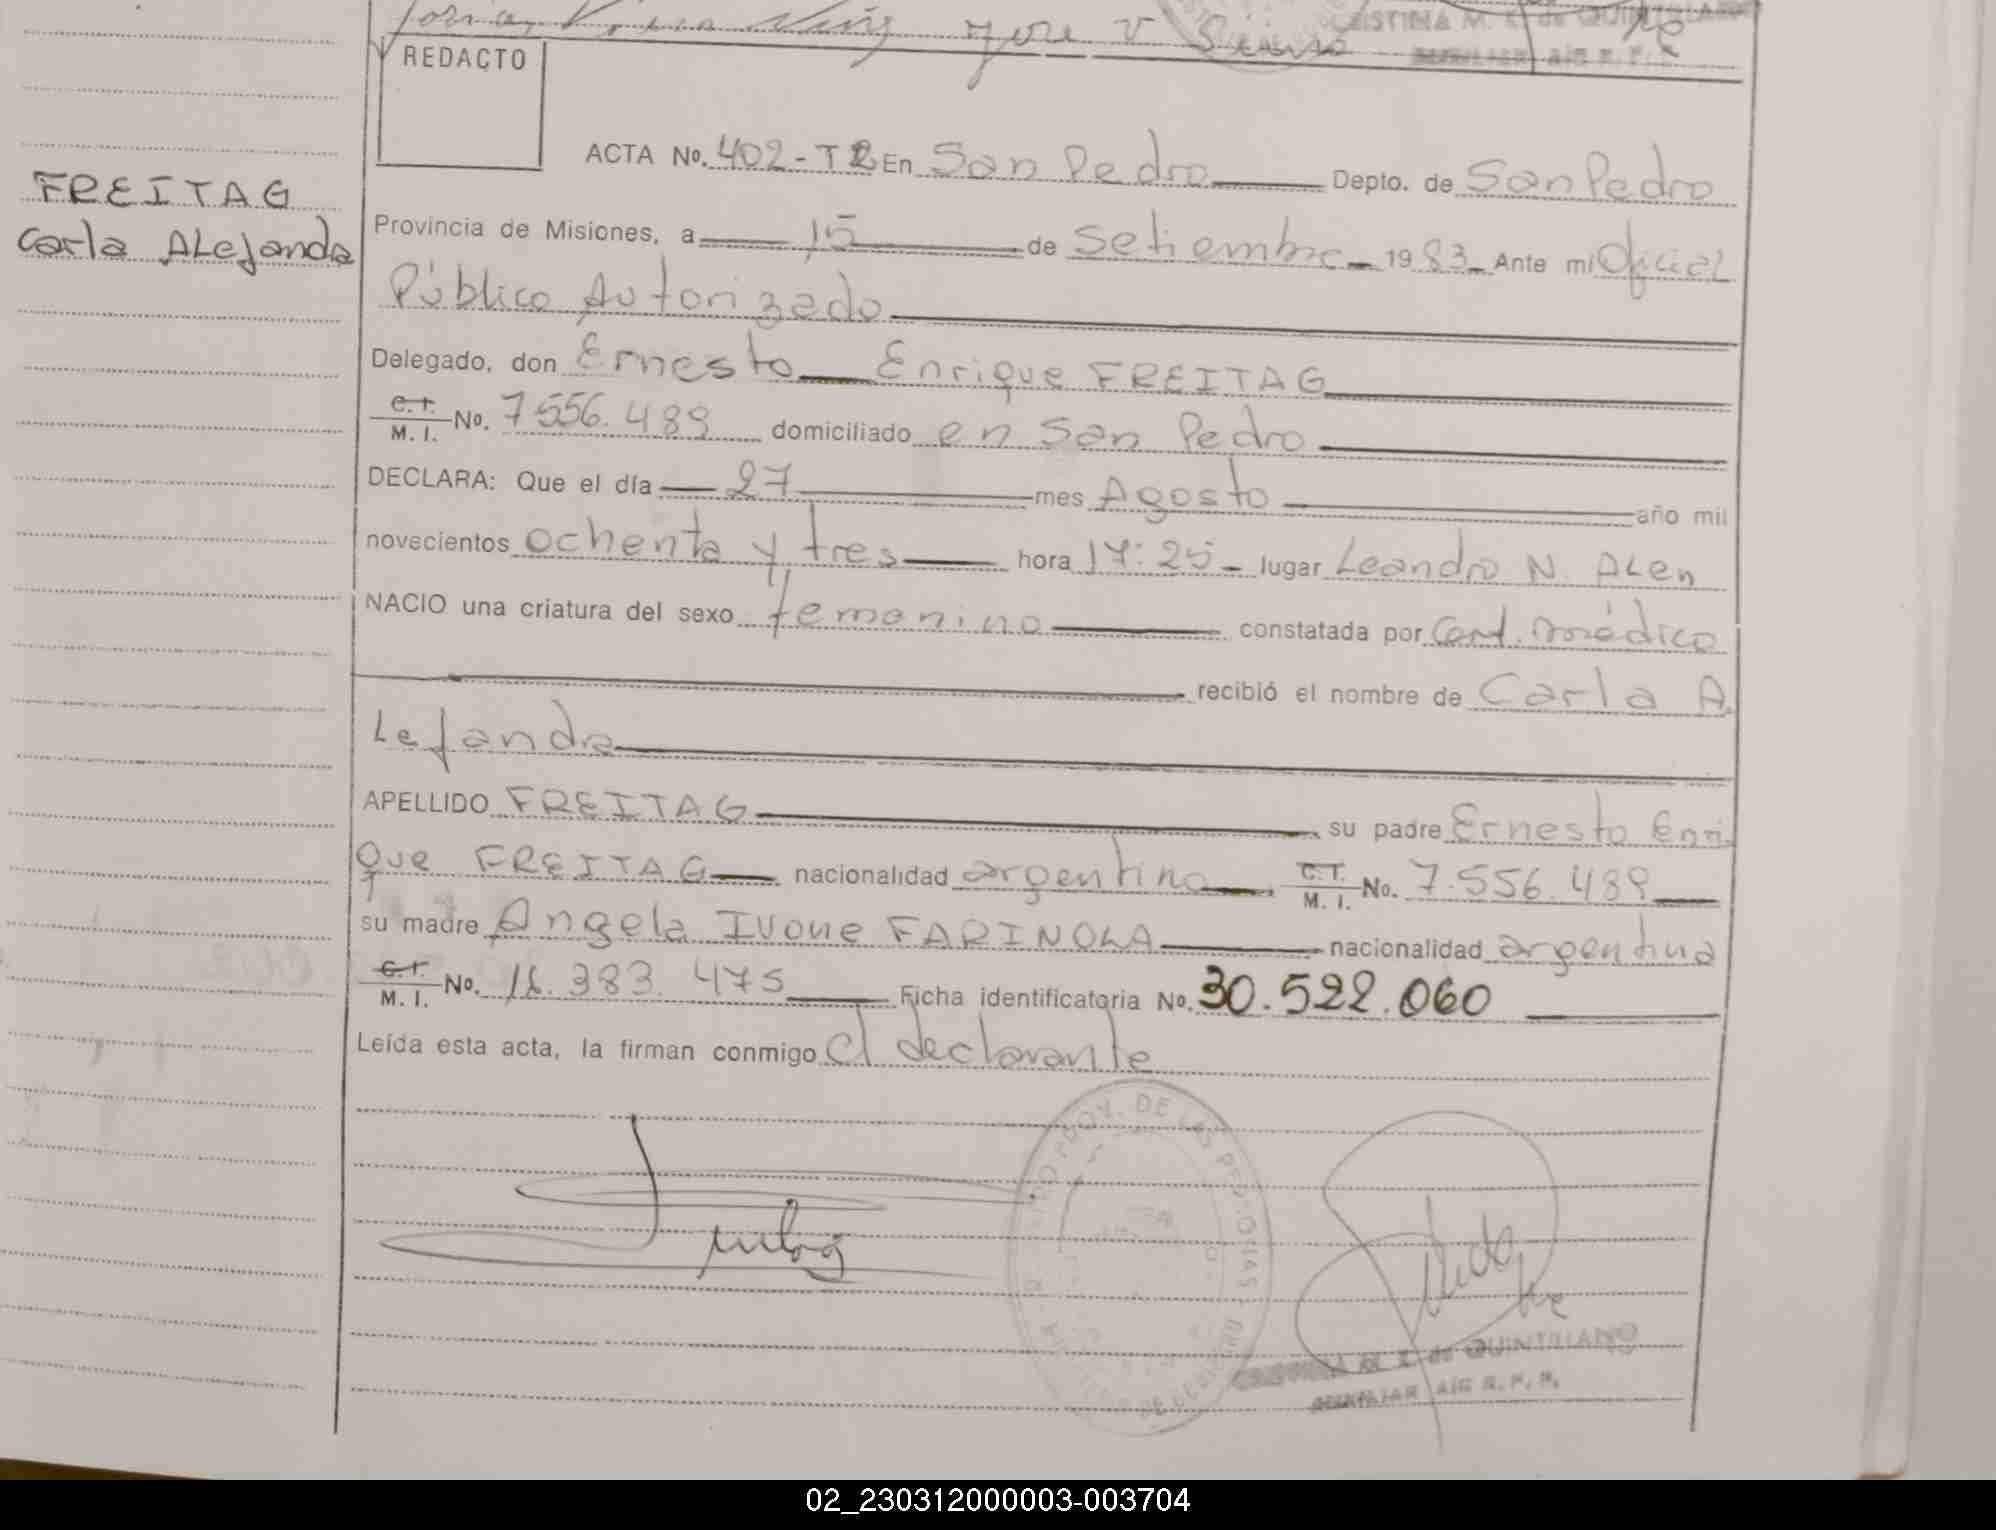 CRISTINA M. K. de QUINTILLANO
AUXILIAR A/C R. P. P.
REDACTO
ACTA No. 402-T2 En San Pedro Depto. de San Pedro
FREITAG
Carla ALejandra
Provincia de Misiones, a 15 de Setiembre 1983 Ante mi Oficial
Público Autorizado
Delegado, don Ernesto Enrique FREITAG
C.I. M. I. No. 7.556.489 domiciliado en San Pedro
DECLARA: Que el día 27 mes Agosto año mil
novecientos ochenta y tres hora 17:25 lugar Leandro N. ALen
NACIO una criatura del sexo femenino constatada por Cert. médico
recibió el nombre de Carla A
Lejandra
APELLIDO FREITAG su padre Ernesto Enri
que FREITAG nacionalidad argentino C.I. M. I. No. 7.556.489
su madre Angela Ivone FARINOLA nacionalidad argentina
C.I. M. I. No. 16.383.475 Ficha identificatoria No. 30.522.060
Leída esta acta, la firman conmigo el declarante
PROV. DE LAS PERSONAS
de QUINTILLANO
AUXILIAR A/C R. P. P.
02_230312000003-003704